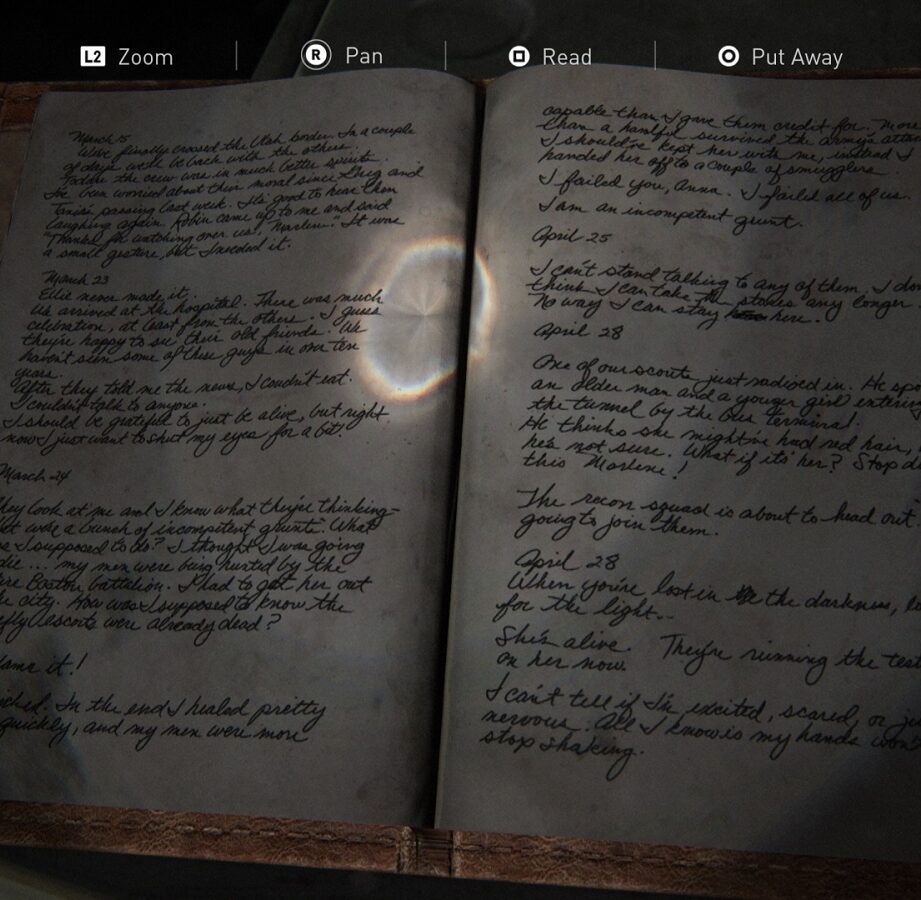 L2 Zoom
R Pan
Read
Put Away
March 15
We've finally crossed the Utah border. In a couple
of days, we'll be back with the others.
Today the crew was in much better spirits.
I've been worried about their moral since Greg and
passing last week. It's good to hear them
laughing again. Robin came up to me and said
"Thanks for watching over us, Marlene". It was
a small gesture, but I needed it.
March 23
Ellie never made it.
We arrived at the hospital. There was much
celebration, at least from the others. I guess
they're happy to see their old friends. We
haven't seen some of these guys in over ten
years.
After they told me the news, I couldn't eat.
I couldn't talk to anyone.
I should be grateful to just be alive, but right
now I just want to shut my eyes for a bit.
March 24
hey look at me and I know what they're thinking-
at were a bunch of incompetent grunts. What
I supposed to do? I thought I was going
die... my men were being hunted by the
ire Boston battalion. I had to get her out
e city. How was I supposed to know the
efly escorts were already dead?
amn it!
icked. In the end I healed pretty
quickly, and my men were more
capable than I gave them credit for. More
than a handful survived the army's atta
I should've kept her with me, instead I
handed her off to a couple of smugglers.
I failed you, Anna. I failed all of us.
I am an incompetent grunt.
April 25
I can't stand talking to any of them. I don
think I can take the stares any longer
No way I can stay here.
April 28
One of our scouts just radioed in. He spo
an older man and a younger girl enterin
the tunnel by the bus terminal.
He thinks she might've had red hair,
he's not sure. What if it's her? Stop d
this Marlene!
The recon squad is about to head out
going to join them.
April 28
When you're lost in the darkness, l
for the light..
She's alive. They're running the test
on her now.
I can't tell if I'm excited, scared, or ju
nervous. All I know is my hands won'
stop shaking.